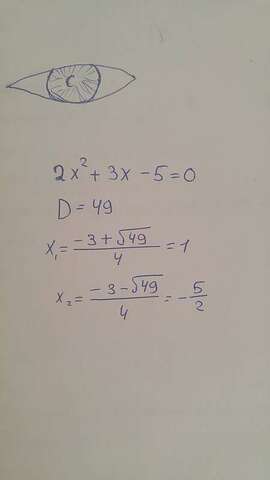 2x² + 3x - 5 = 0
D = 49
x₁ = (-3 + √49)/4 = 1
x₂ = (-3 - √49)/4 = -5/2